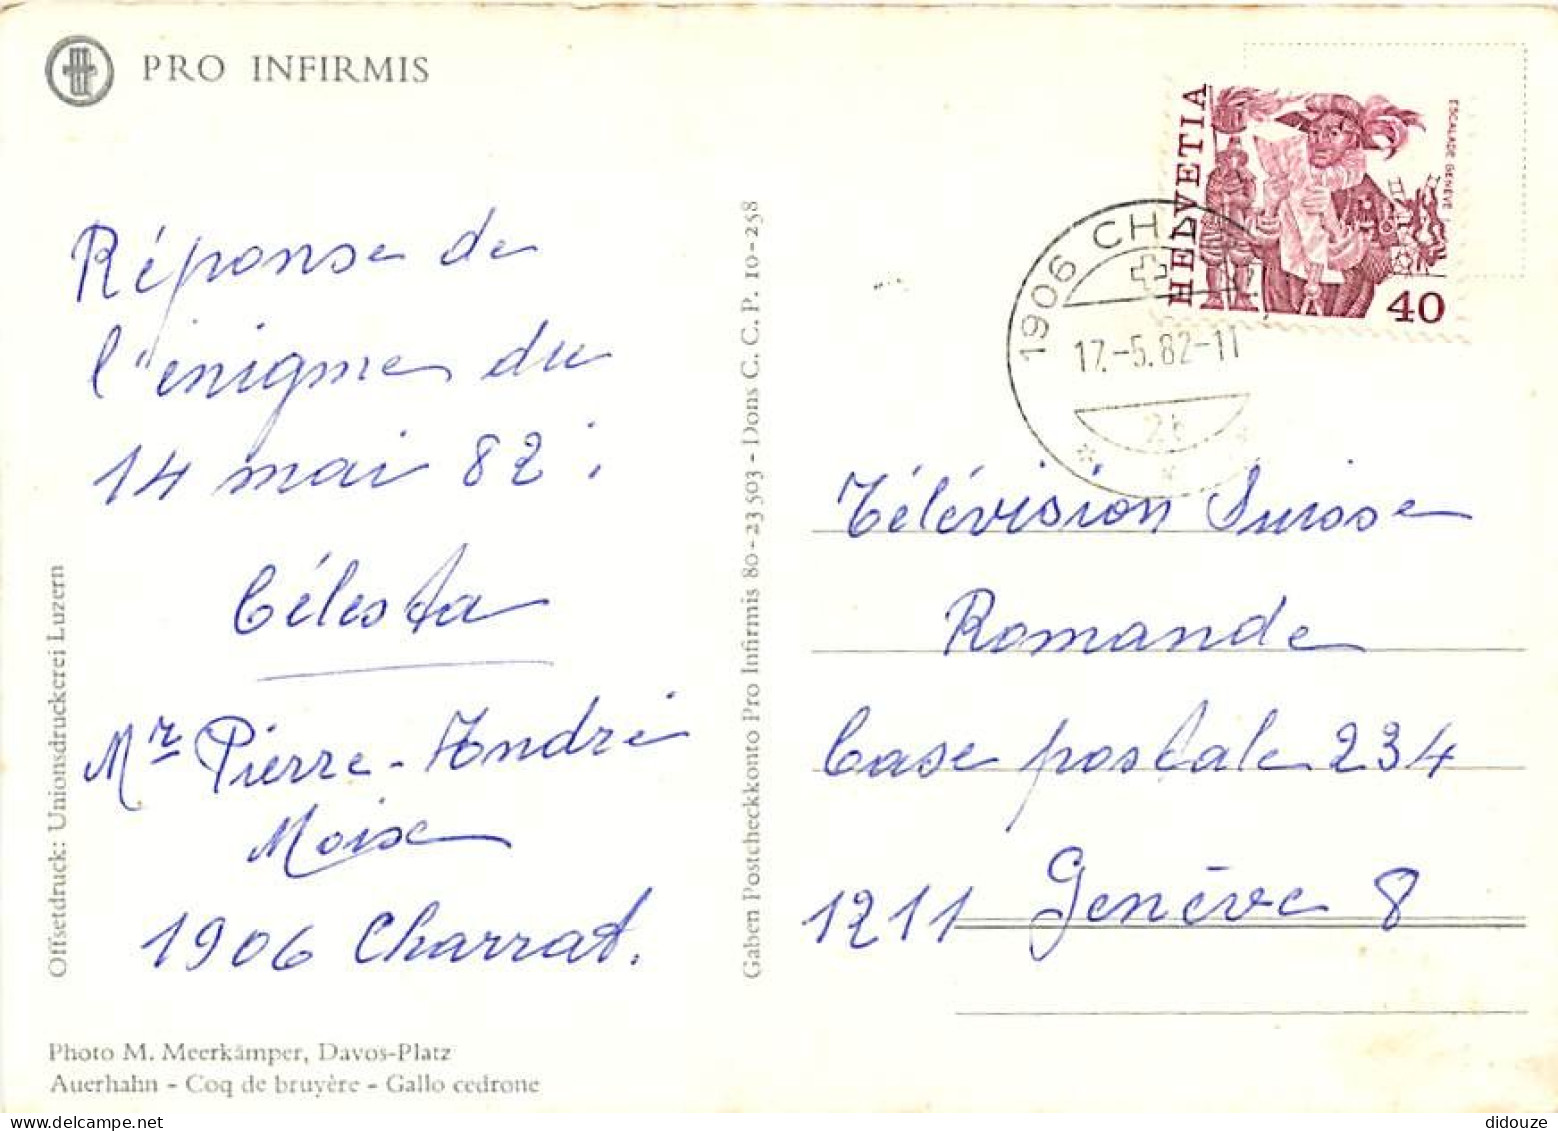 PRO INFIRMIS
Réponse de
l'énigme du
14 mai 82 :
Célesta
Mr Pierre-André
Moix
1906 Charrat.
Offsetdruck: Unionsdruckerei Luzern
Photo M. Meerkämper, Davos-Platz
Auerhahn - Coq de bruyère - Gallo cedrone
Gaben Postcheckkonto Pro Infirmis 80-23503 - Dons C. C. P. 10-258
HELVETIA
ESCALADE GENÈVE
40
1906 CHA
17.-5.82-11
Télévision Suisse
Romande
Case postale 234
1211 Genève 8
didouze